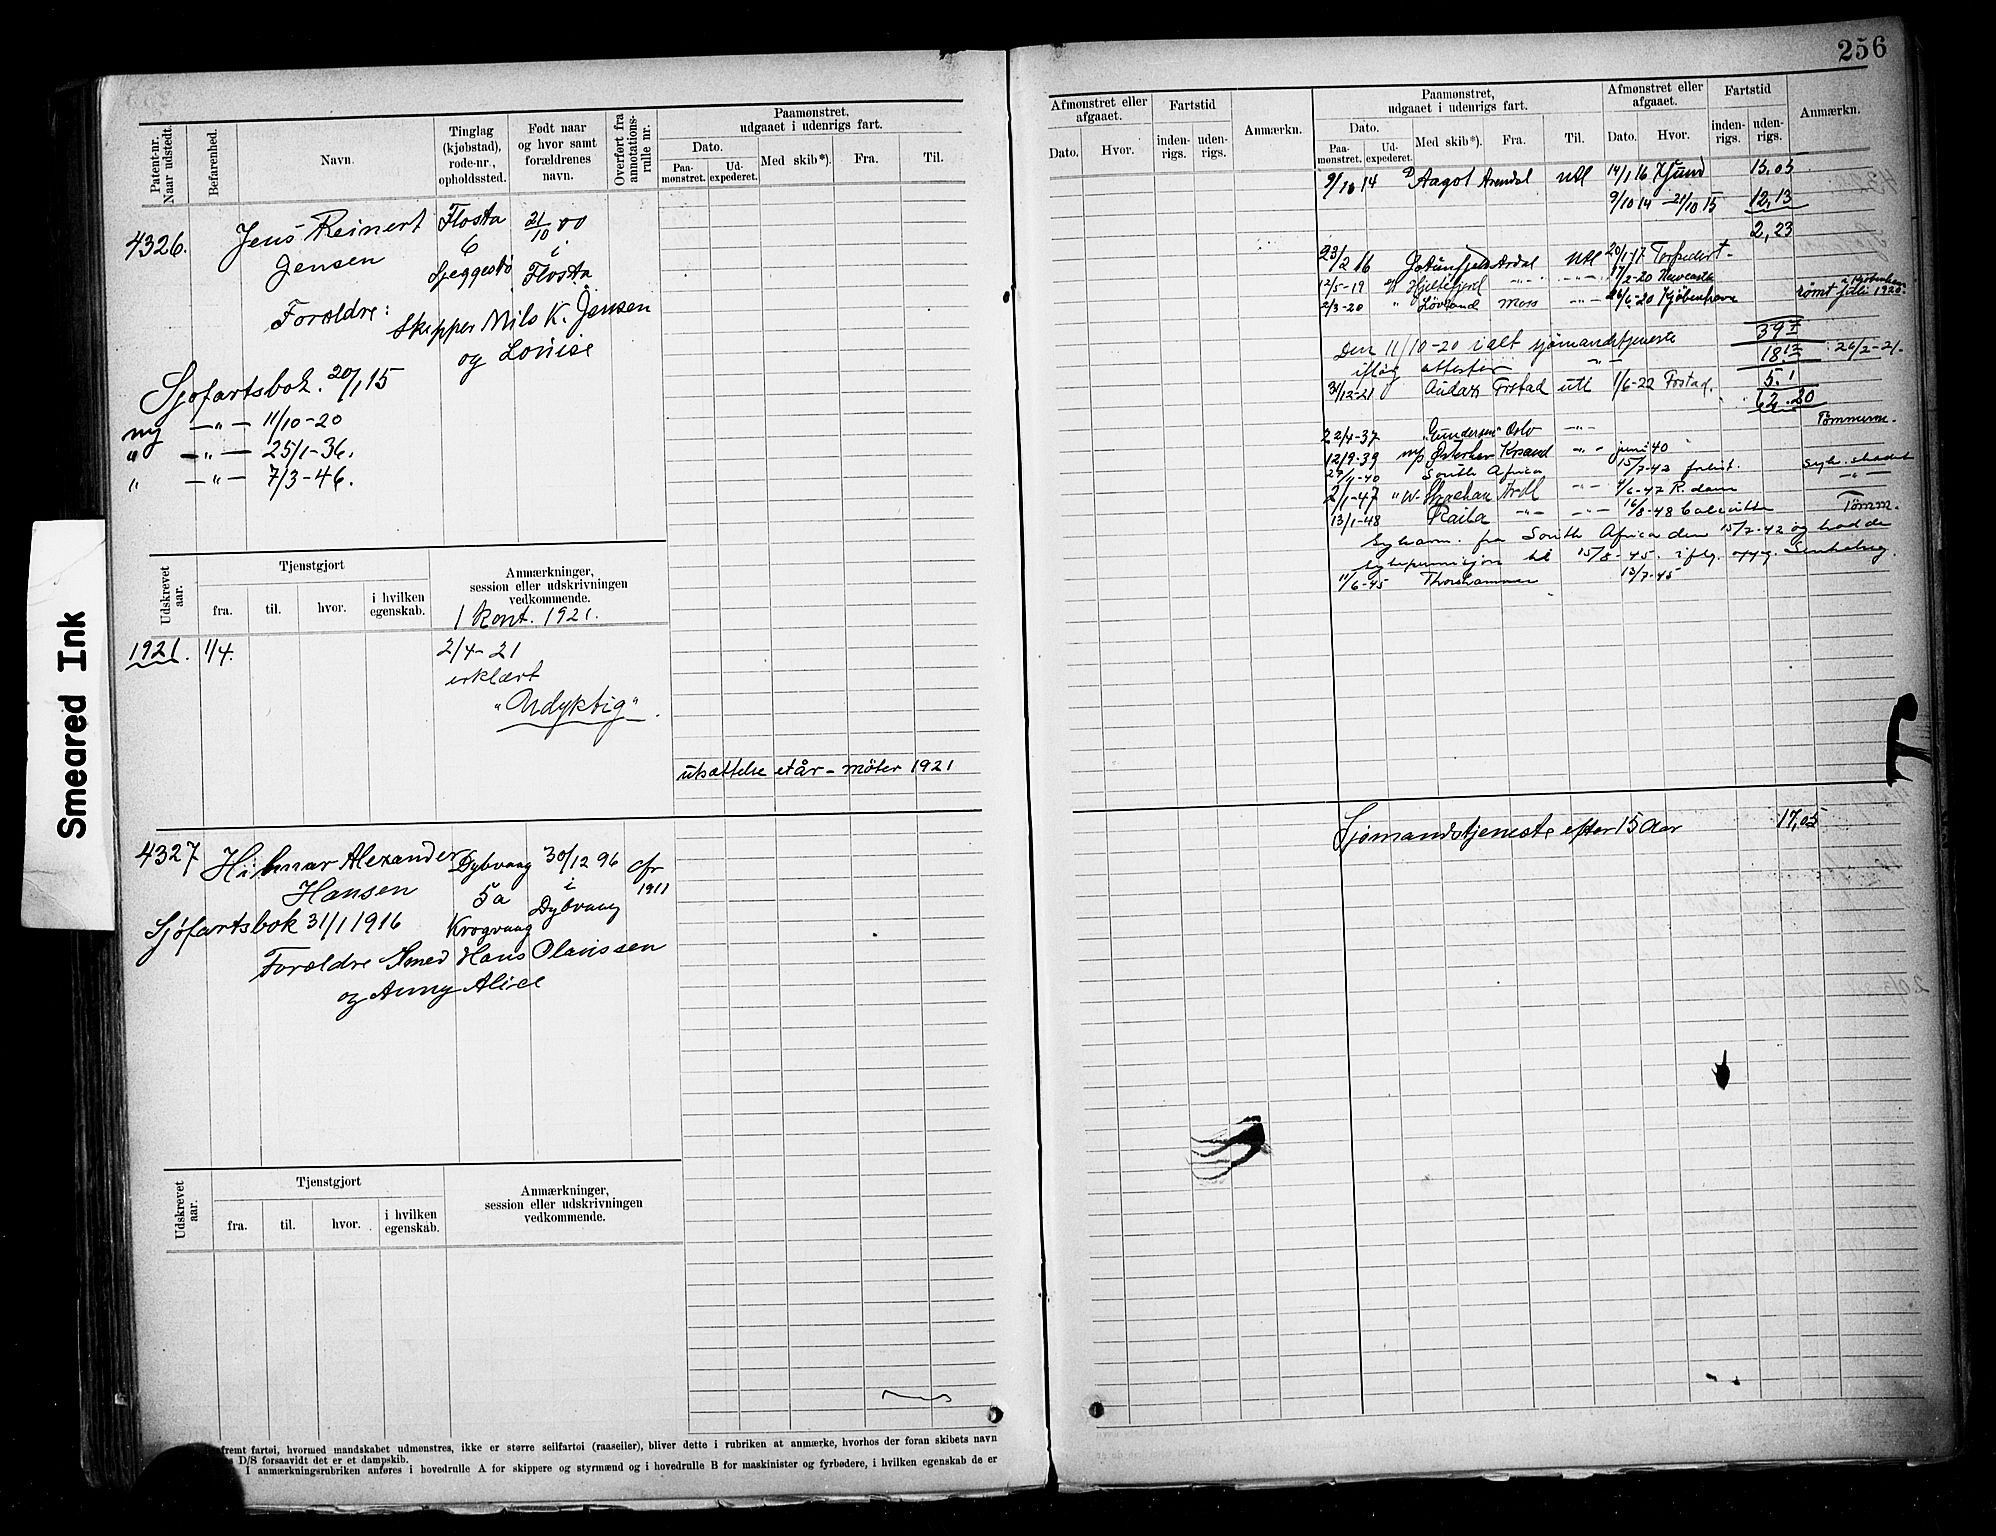 256
Patent-nr. Naar udstedt.
Befarenhed.
Navn.
Tinglag (kjøbstad), rode-nr., opholdssted.
Født naar og hvor samt forældrenes navn.
Overført fra annotations-rulle nr.
Paamønstret, udgaaet i udenrigs fart.
Dato.
Paa-mønstret.
Ud-expederet.
Med skib*).
Fra.
Til.
4326.
Jens Reinert
Jensen
Flosta
6
21/10 00
i
Flosta
Forældre:
Skipper Nils K. Jensen
og Lovise
Sjøfartsbok. 20/1 15
ny —"— 11/10-20
" —"— 25/1-36.
" —"— 7/3-46.
Udskrevet aar.
Tjenstgjort
fra.
til.
hvor.
i hvilken egenskab.
Anmærkninger, session eller udskrivningen vedkommende.
1 Kont. 1921.
1921. 1/4.
2/4-21
erklært
"Udyktig".
utsættelse et år – møter 1921
4327
Hilmar Alexander
Hansen
Dybvaag
5a
Krogvaag
30/12 96
i
Dybvaag
cfr
1911
Sjøfartsbok 31/1 1916
Forældre Smed Hans Olaussen
og Anny Alice
Udskrevet aar.
Tjenstgjort
fra.
til.
hvor.
i hvilken egenskab.
Anmærkninger, session eller udskrivningen vedkommende.
fremt fartøi, hvormed mandskabet udmønstres, ikke er større seilfartøi (raaseiler), bliver dette i rubriken at anmærke, hvorhos der foran skibets navn
D/S forsaavidt det er et dampskib.
I anmærkningsrubriken anføres i hovedrulle A for skippere og styrmænd og i hovedrulle B for maskinister og fyrbødere, i hvilken egenskab de er
Afmønstret eller afgaaet.
Dato.
Hvor.
Fartstid
inden-rigs.
uden-rigs.
Anmærkn.
Paamønstret, udgaaet i udenrigs fart.
Dato.
Paa-mønstret.
Ud-expederet.
Med skib*).
Fra.
Til.
Afmønstret eller afgaaet.
Dato.
Hvor.
Fartstid
inden-rigs.
uden-rigs.
Anmærkn.
9/10 14 Aagot Arendal Utl 14/1 16 15,05
9/10 14 – 21/10 15 12,13
2,23
23/2 16 Utl 20/1-17 Torpedert.
12/5-19 Hjeltefjord —"— —"— 17/2-20 Newcastle
2/3-20 " Løvland Moss —"— 26/6-20 Kjøbenhavn rømt juli 1920.
Den 11/10-20 i alt sjømandstjeneste
ifølg attester " 26/2-21.
31/12-21 utl 1/6-22 5.1
62.20
22/4-37 "Gundersen" Oslo —"— Tømmerm.
12/9-39 m/s Østerhav Krsand —"— juni 40
27/11-40 South Africa 15/7-42 forlist.
2/1-47 Ardl —"— 4/6-47 R.dam —"—
13/1-48 Raila —"— —"— 16/8-48 Tømm.
fra South Africa den 15/7-42 og hadde
til 15/8-45. iflg. oppg.
11/6-45 Thorshammer 13/7-45
Sjømandstjeneste efter 15 Aar 17,05
Smeared Ink